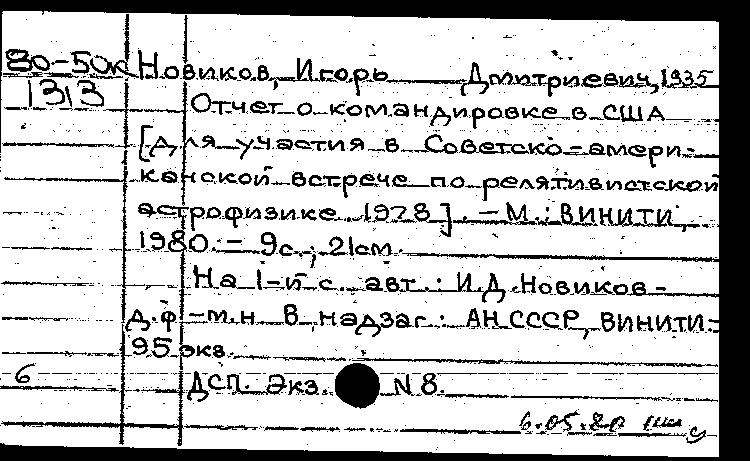 80-50к Новиков, Игорь Дмитриевич, 1935
1313 Отчет о командировке в США
[для участия в Советско-амери-
канской встрече по релятивистской
астрофизике 1978]. - М.: ВИНИТИ,
1980. - 9с.; 21см.
На 1-й с. авт.: И.Д. Новиков -
д.ф-м.н. В надзаг.: АН СССР, ВИНИТИ.-
95 экз.
6 ДСП. Экз. N 8.
6.05.80